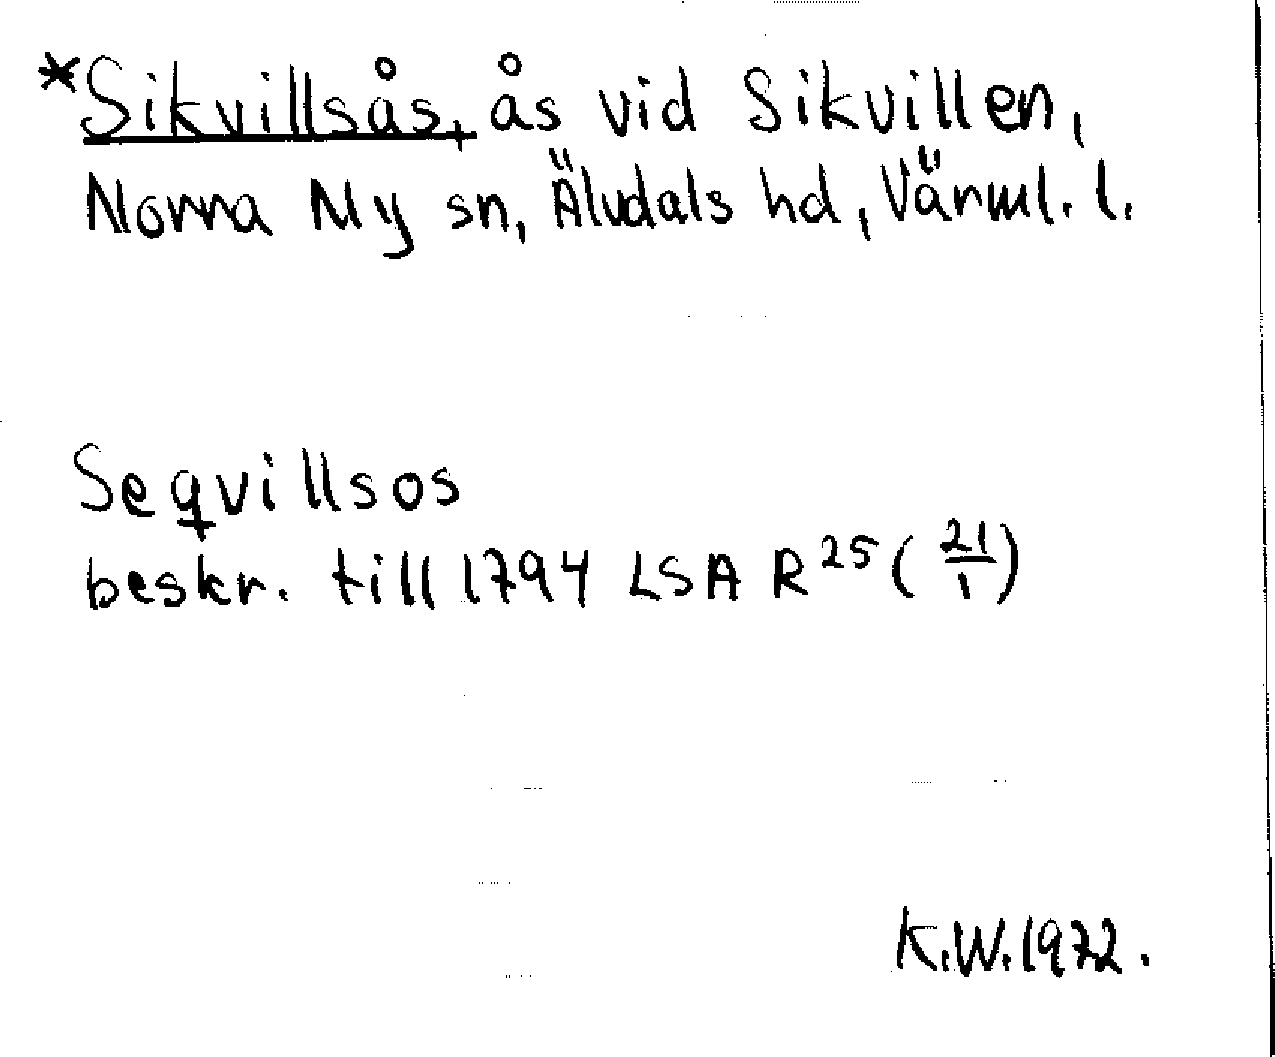 *Sikvillsås, ås vid Sikvillen,
Norra Ny sn, Älvdals hd, Värml. l.
Seqvillsos
beskr. till 1794 LSA R 25 (21/1)
K.W. 1972.